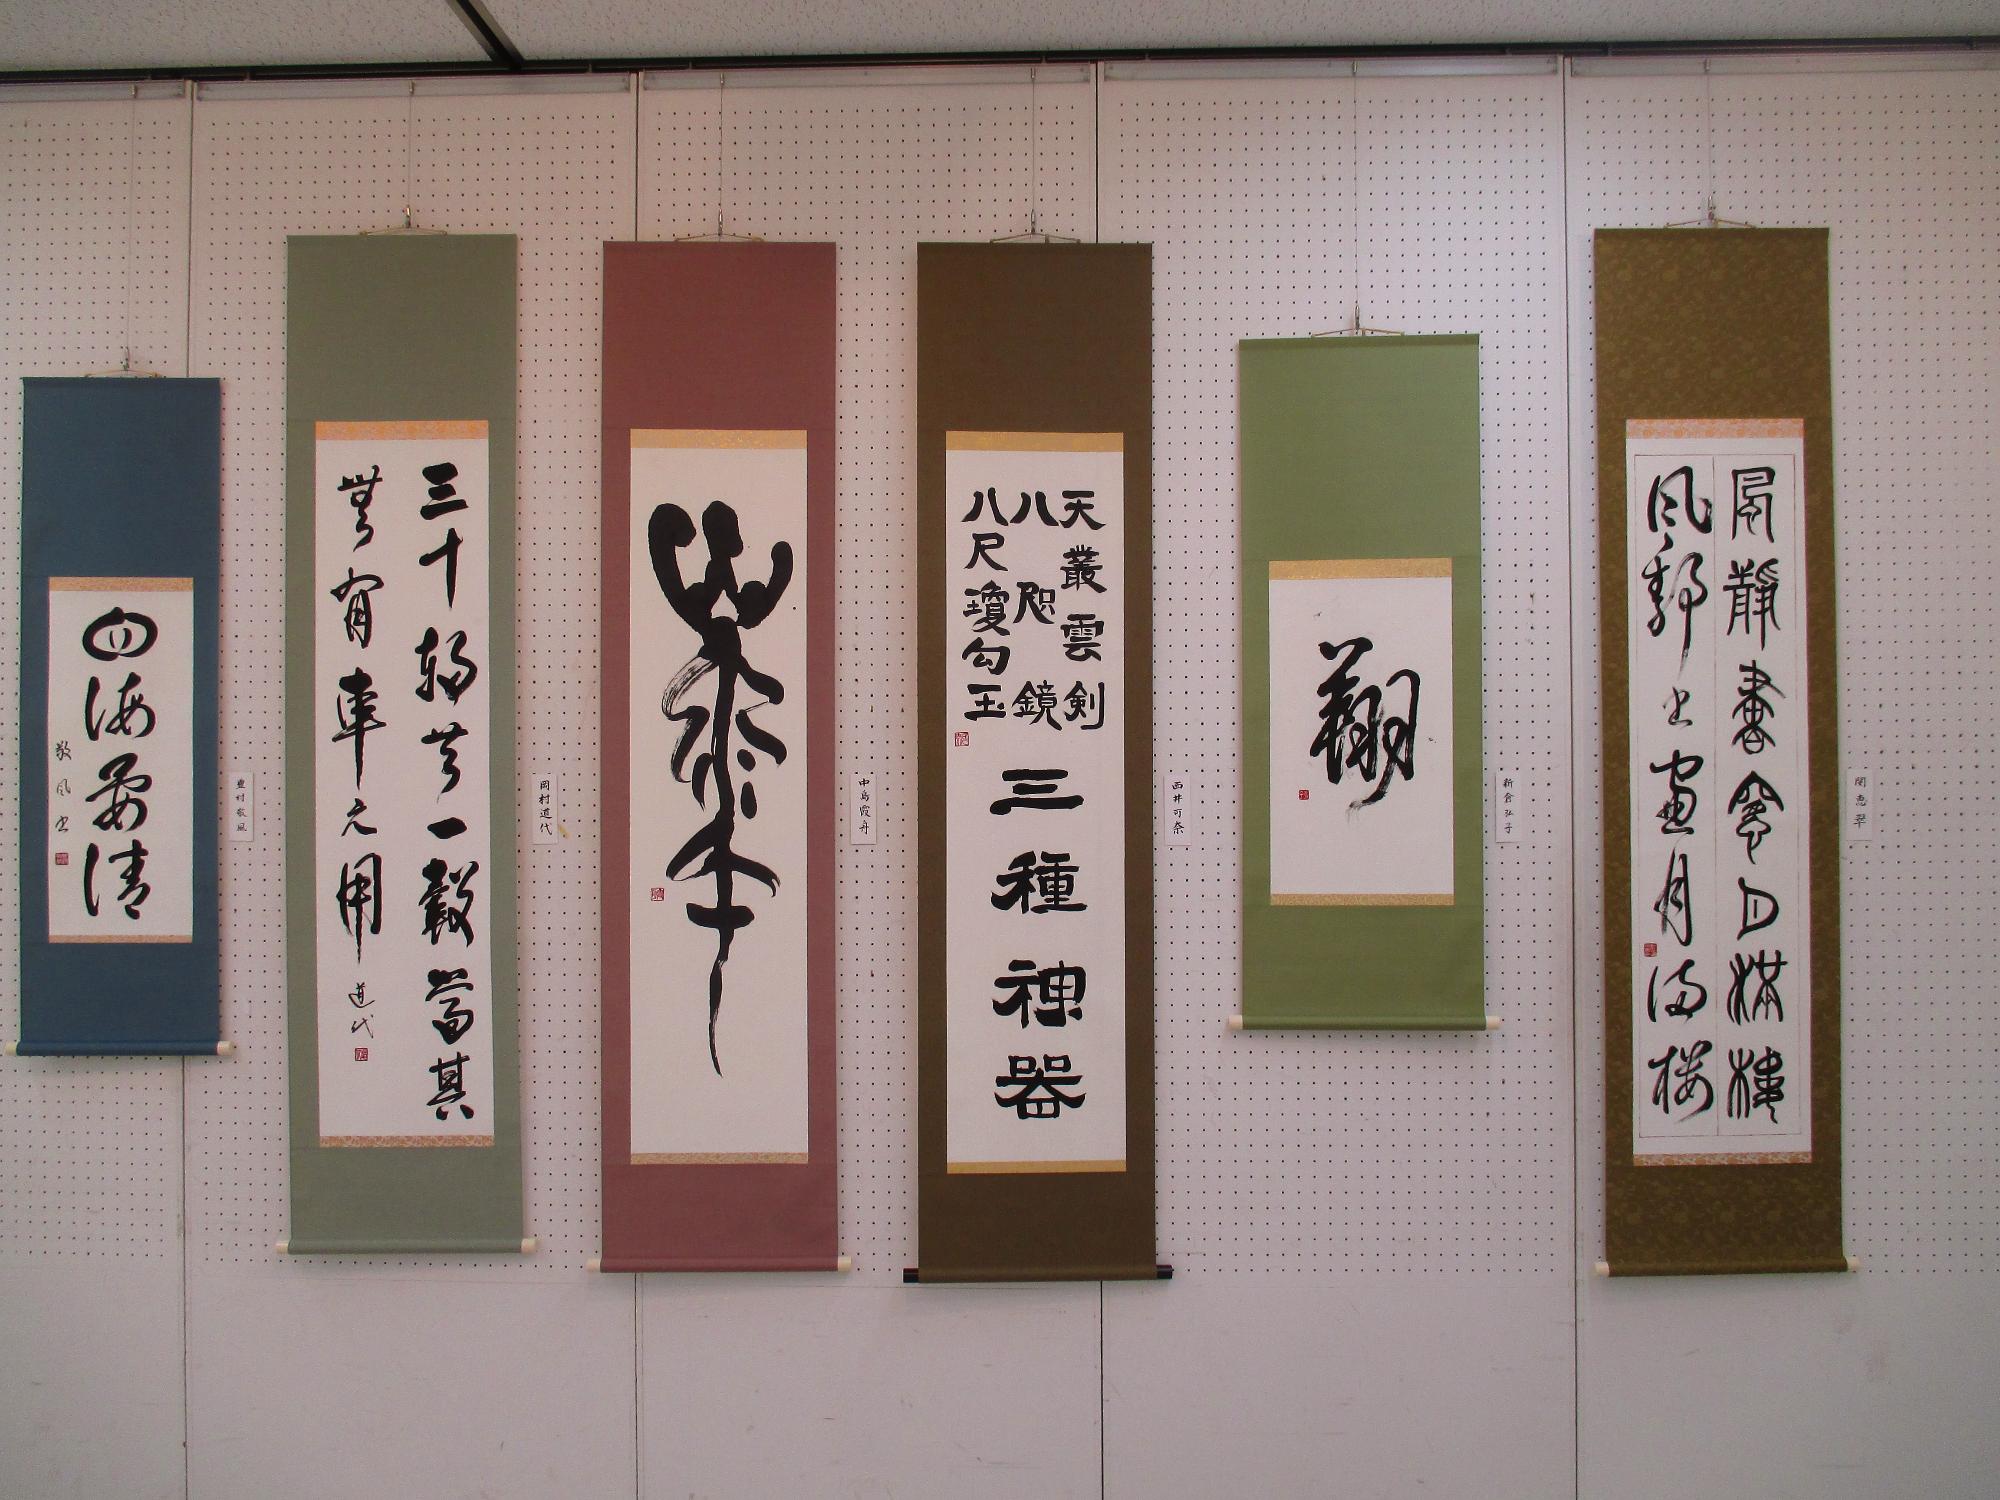 四海晏清
敬風書
豊村敬風
三十輻共一轂当其
無有車之用
道代
岡村道代
中島霞舟
天叢雲剣
八咫鏡
八尺瓊勾玉
三種神器
西井可奈
翔
新倉弘子
風静書窓月満楼
風静書窓月満楼
関恵翠